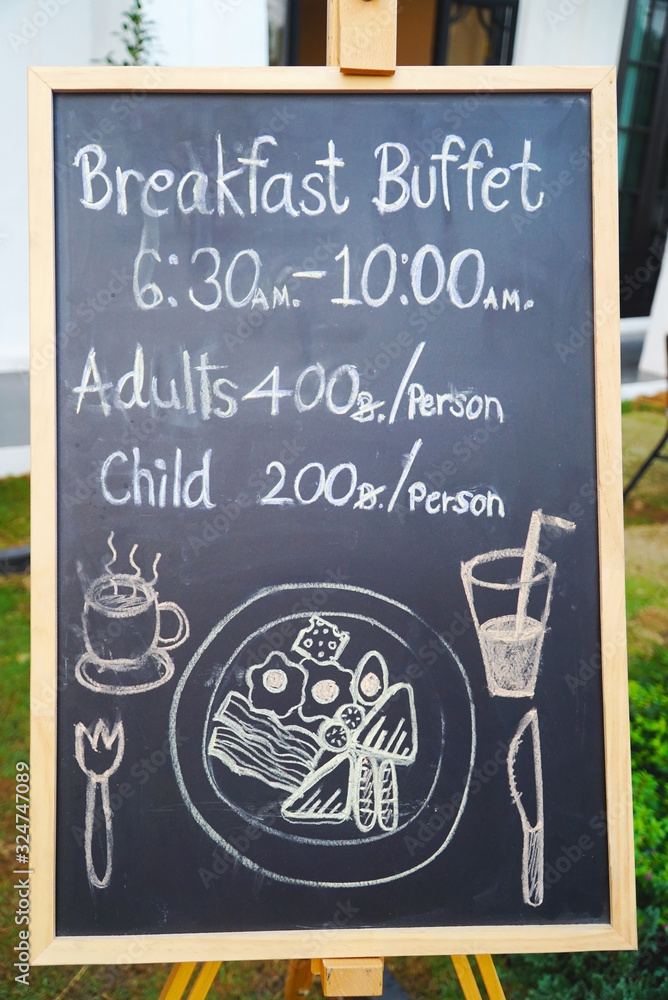 Breakfast Buffet
6:30AM.-10:00AM.
Adults 400B./Person
Child 200B./Person
Adobe Stock | #324747089